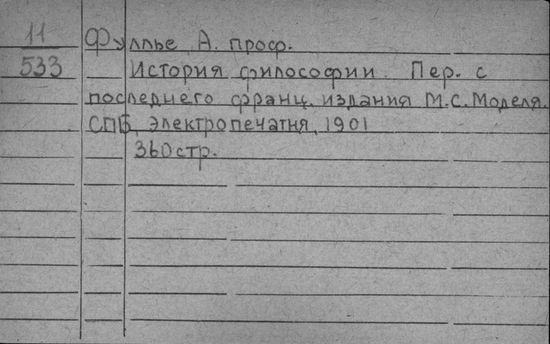 11
533
Фуллье А. проф.
История философии. Пер. с
последнего франц. издания М.С. Моделя.
СПБ, Электропечатня, 1901
360стр.